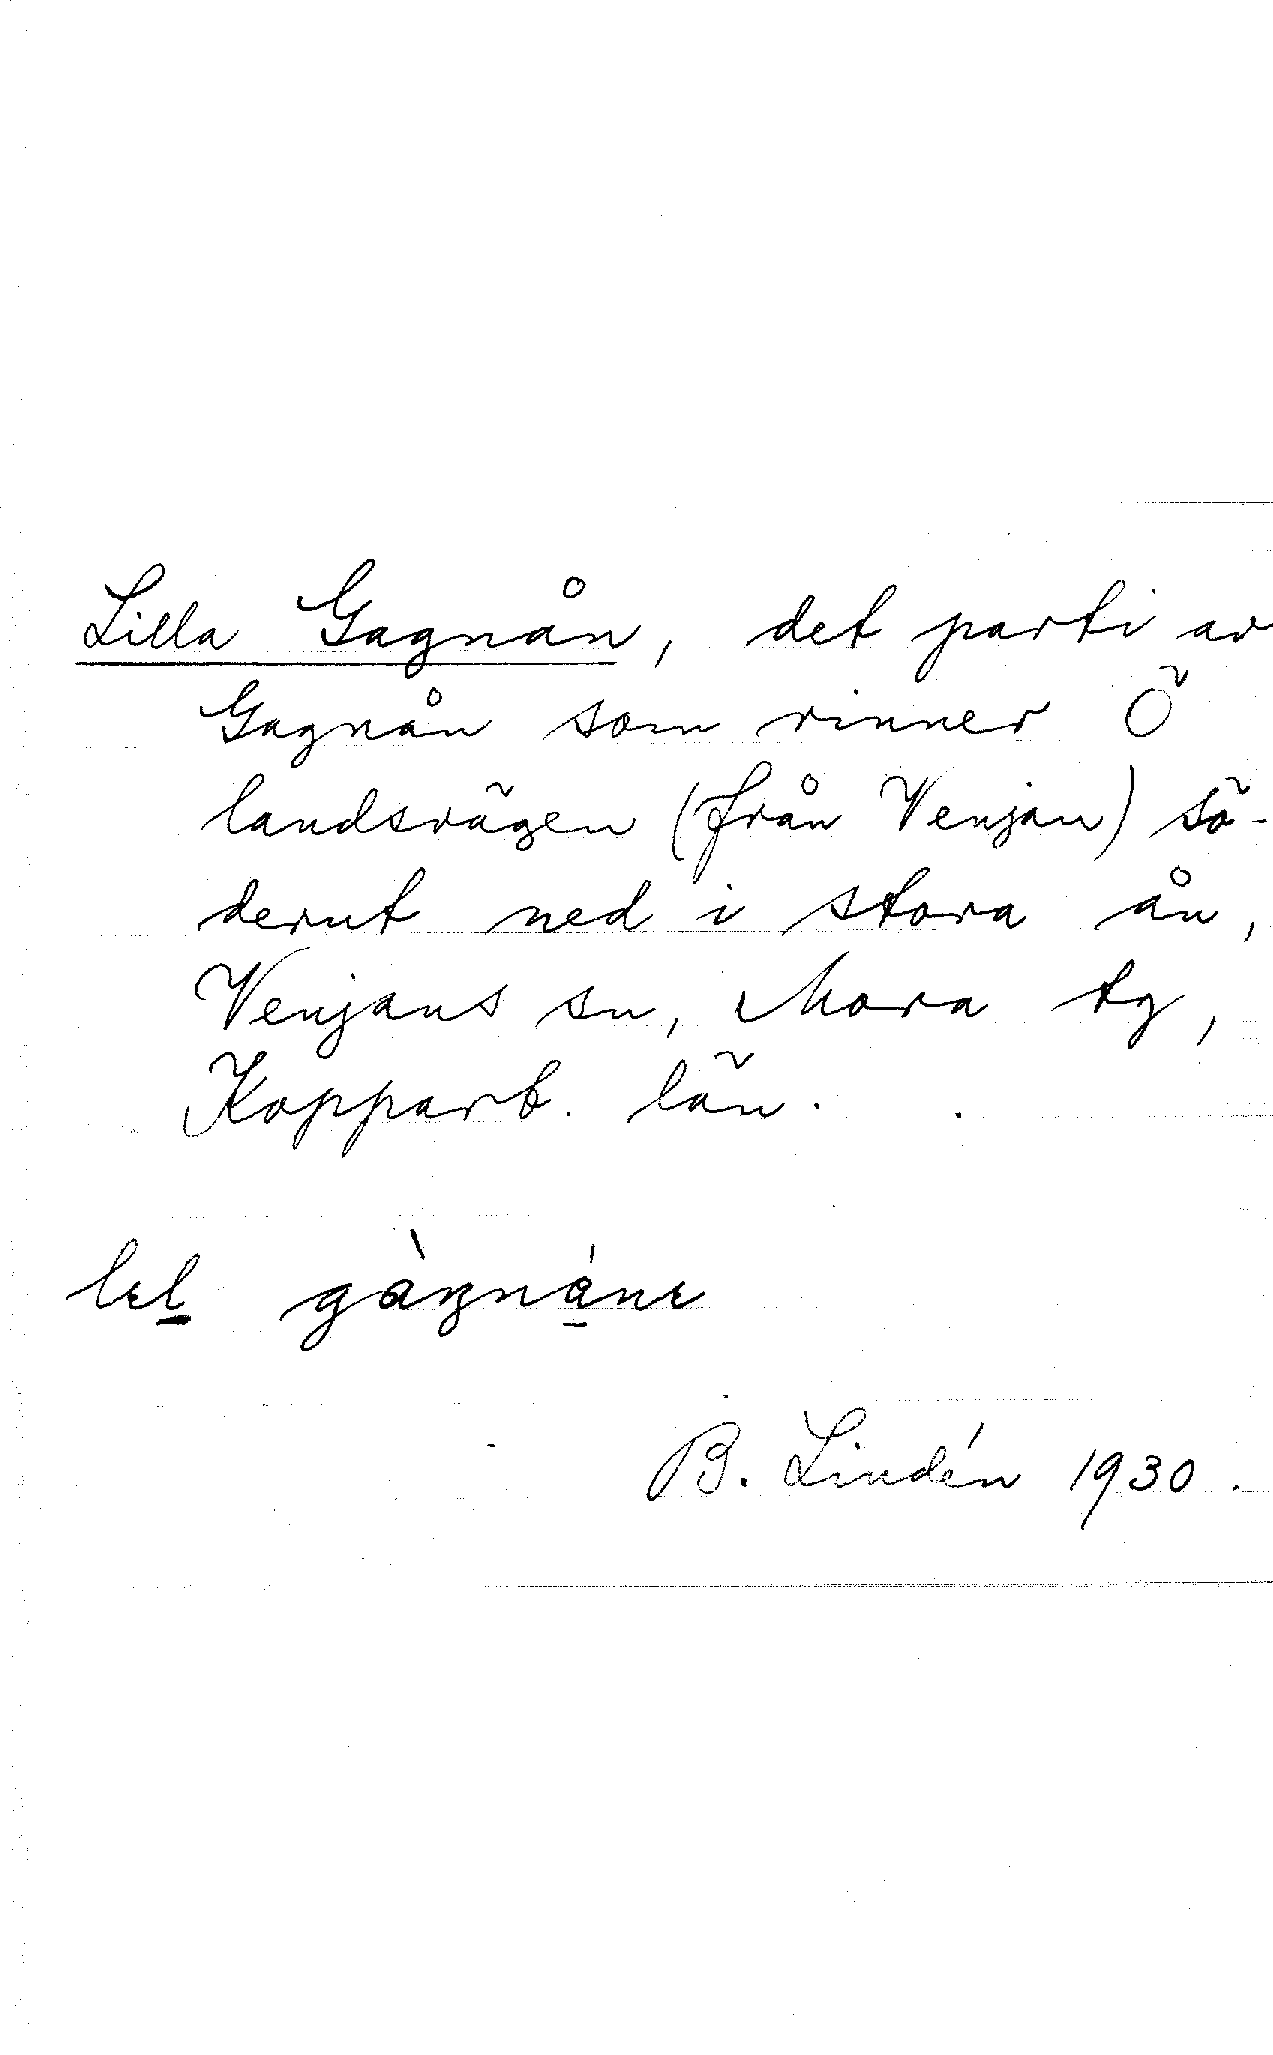 Lilla Gagnån, det parti av
Gagnån som rinner Ö
landsvägen (från Venjan) sö-
derut ned i stora ån,
Venjans sn, Mora tg,
Kopparb. län.
B. Lindén 1930.